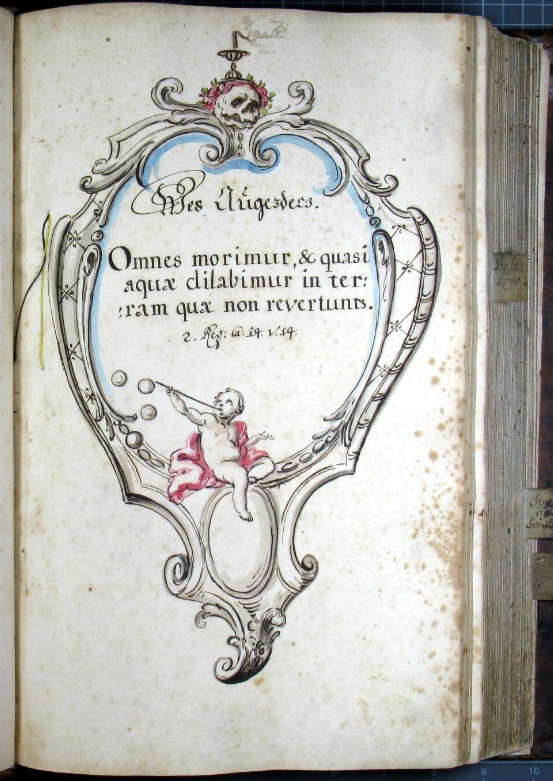 Wes Augezdecz.
Omnes morimur, & quasi
aquæ dilabimur in ter:
:ram quæ non revertunt.
2. Reg: ca: 14. v. 14.
9 10